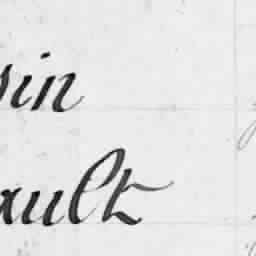 sin
ault